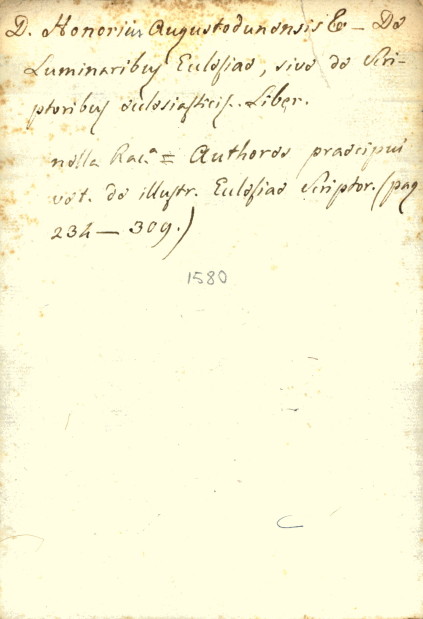 D. Honorius Augustodunensis E – De
Luminaribus Eclesiae, sive de Scri-
ptoribus eclesiasticis. Liber.
nella Rac.ª = Authores praecipui
vet. de illustr. Eclesiae Scriptor. (pag
234 — 309.)
1580